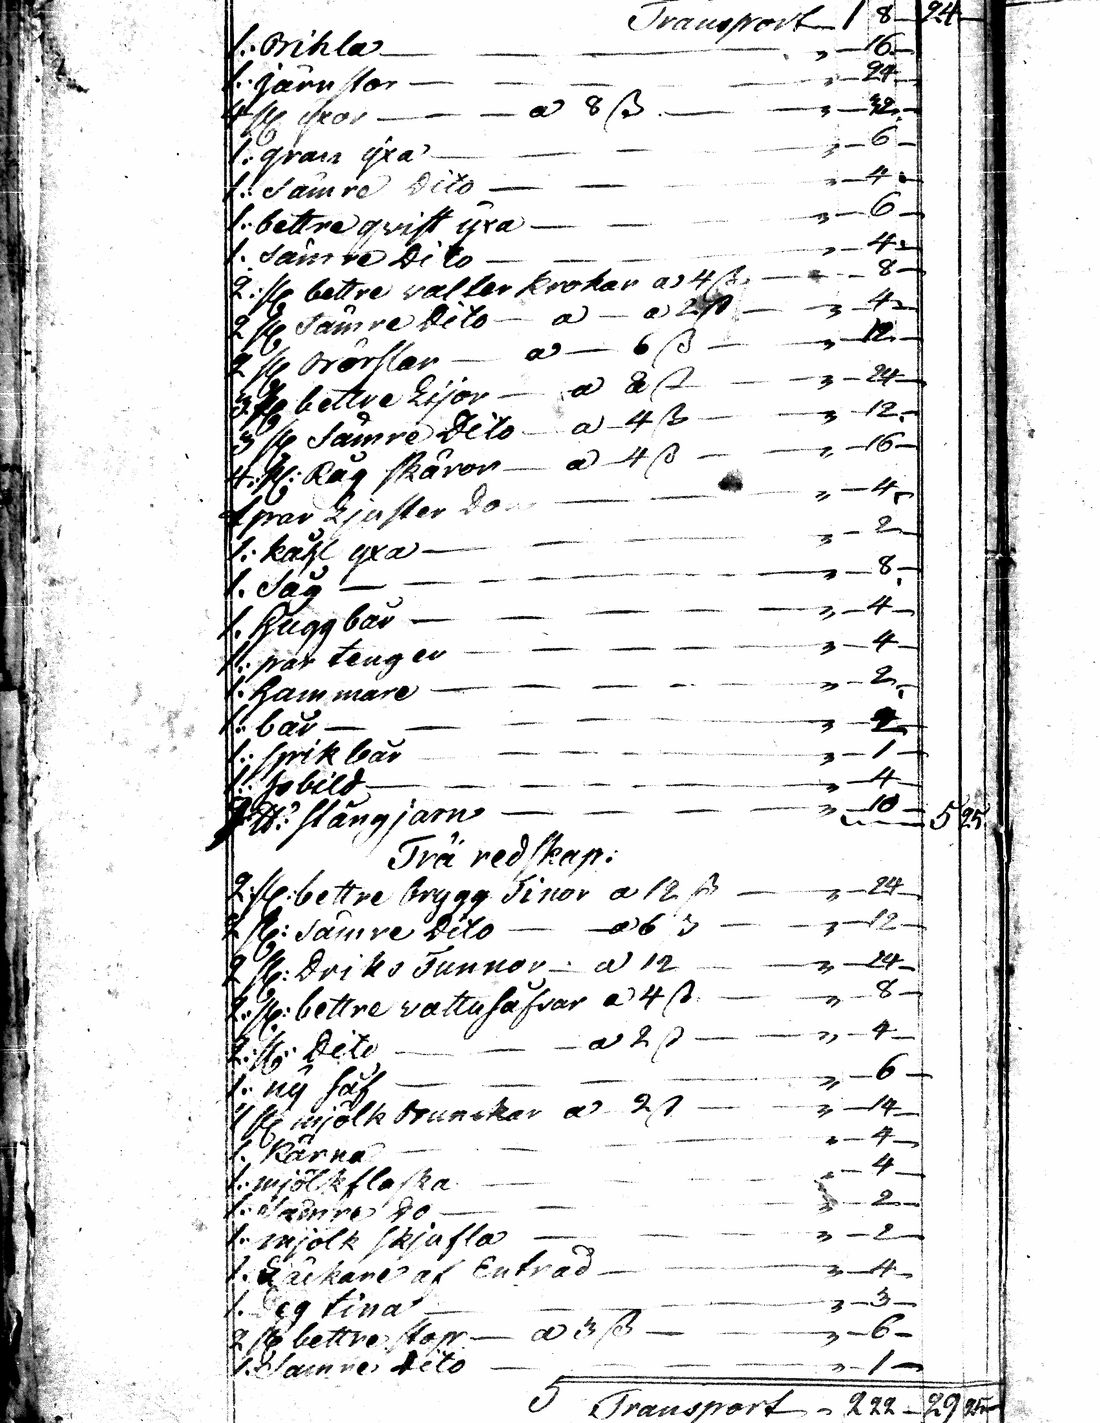 Transport 1 8 24
1: Vrihla „ 16
1: järnstör „ 24
4 st yxor a 8 ß „ 32
1: gran yxa „ 6
1: Sämre Dito „ 4
1: bettre qvist yxa „ 6
1: Sämre Dito „ 4
2: st bettre valter krokar a 4 ß 8
2 st Sämre Dito a a 2 ß „ 4
2 st a 6 ß „ 12
3 st bettre Lijor a 8 ß „ 24
3 st Sämre Dito a 4 ß „ 12
4: st: Råg skäror a 4 ß „ 16
1 par Ljuster Do „ 4
1: yxa „ 2
1: Såg „ 8
1. Huggbår „ 4
1: par tenger „ 4
1: hammare „ 2
1: bår „ 2
1: spikbår „ 1
1: „ 4
stångjärn „ 10 5 25
Trä redskap:
2: st: bettre brygg Tinor a 12 ß „ 24
2 st: Sämre Dito a 6 ß „ 12
2 st: Driks Tunnor a 12 „ 24
2: st: bettre vattusåfvar a 4 ß „ 8
2: st: Dito a 2 ß „ 4
1: ny såf „ 6
7 st mjölk bunckar a 2 ß „ 14
1. Kärna „ 4
1: mjölkflaska „ 4
1: Sämre Do „ 2
1: mjölk skjufla „ 2
1. af Enträd „ 4
1. Deg tina „ 3
2 st bettre stop a 3 ß „ 6
1: Sämre Dito „ 1
5 Transport 2 22 29 25